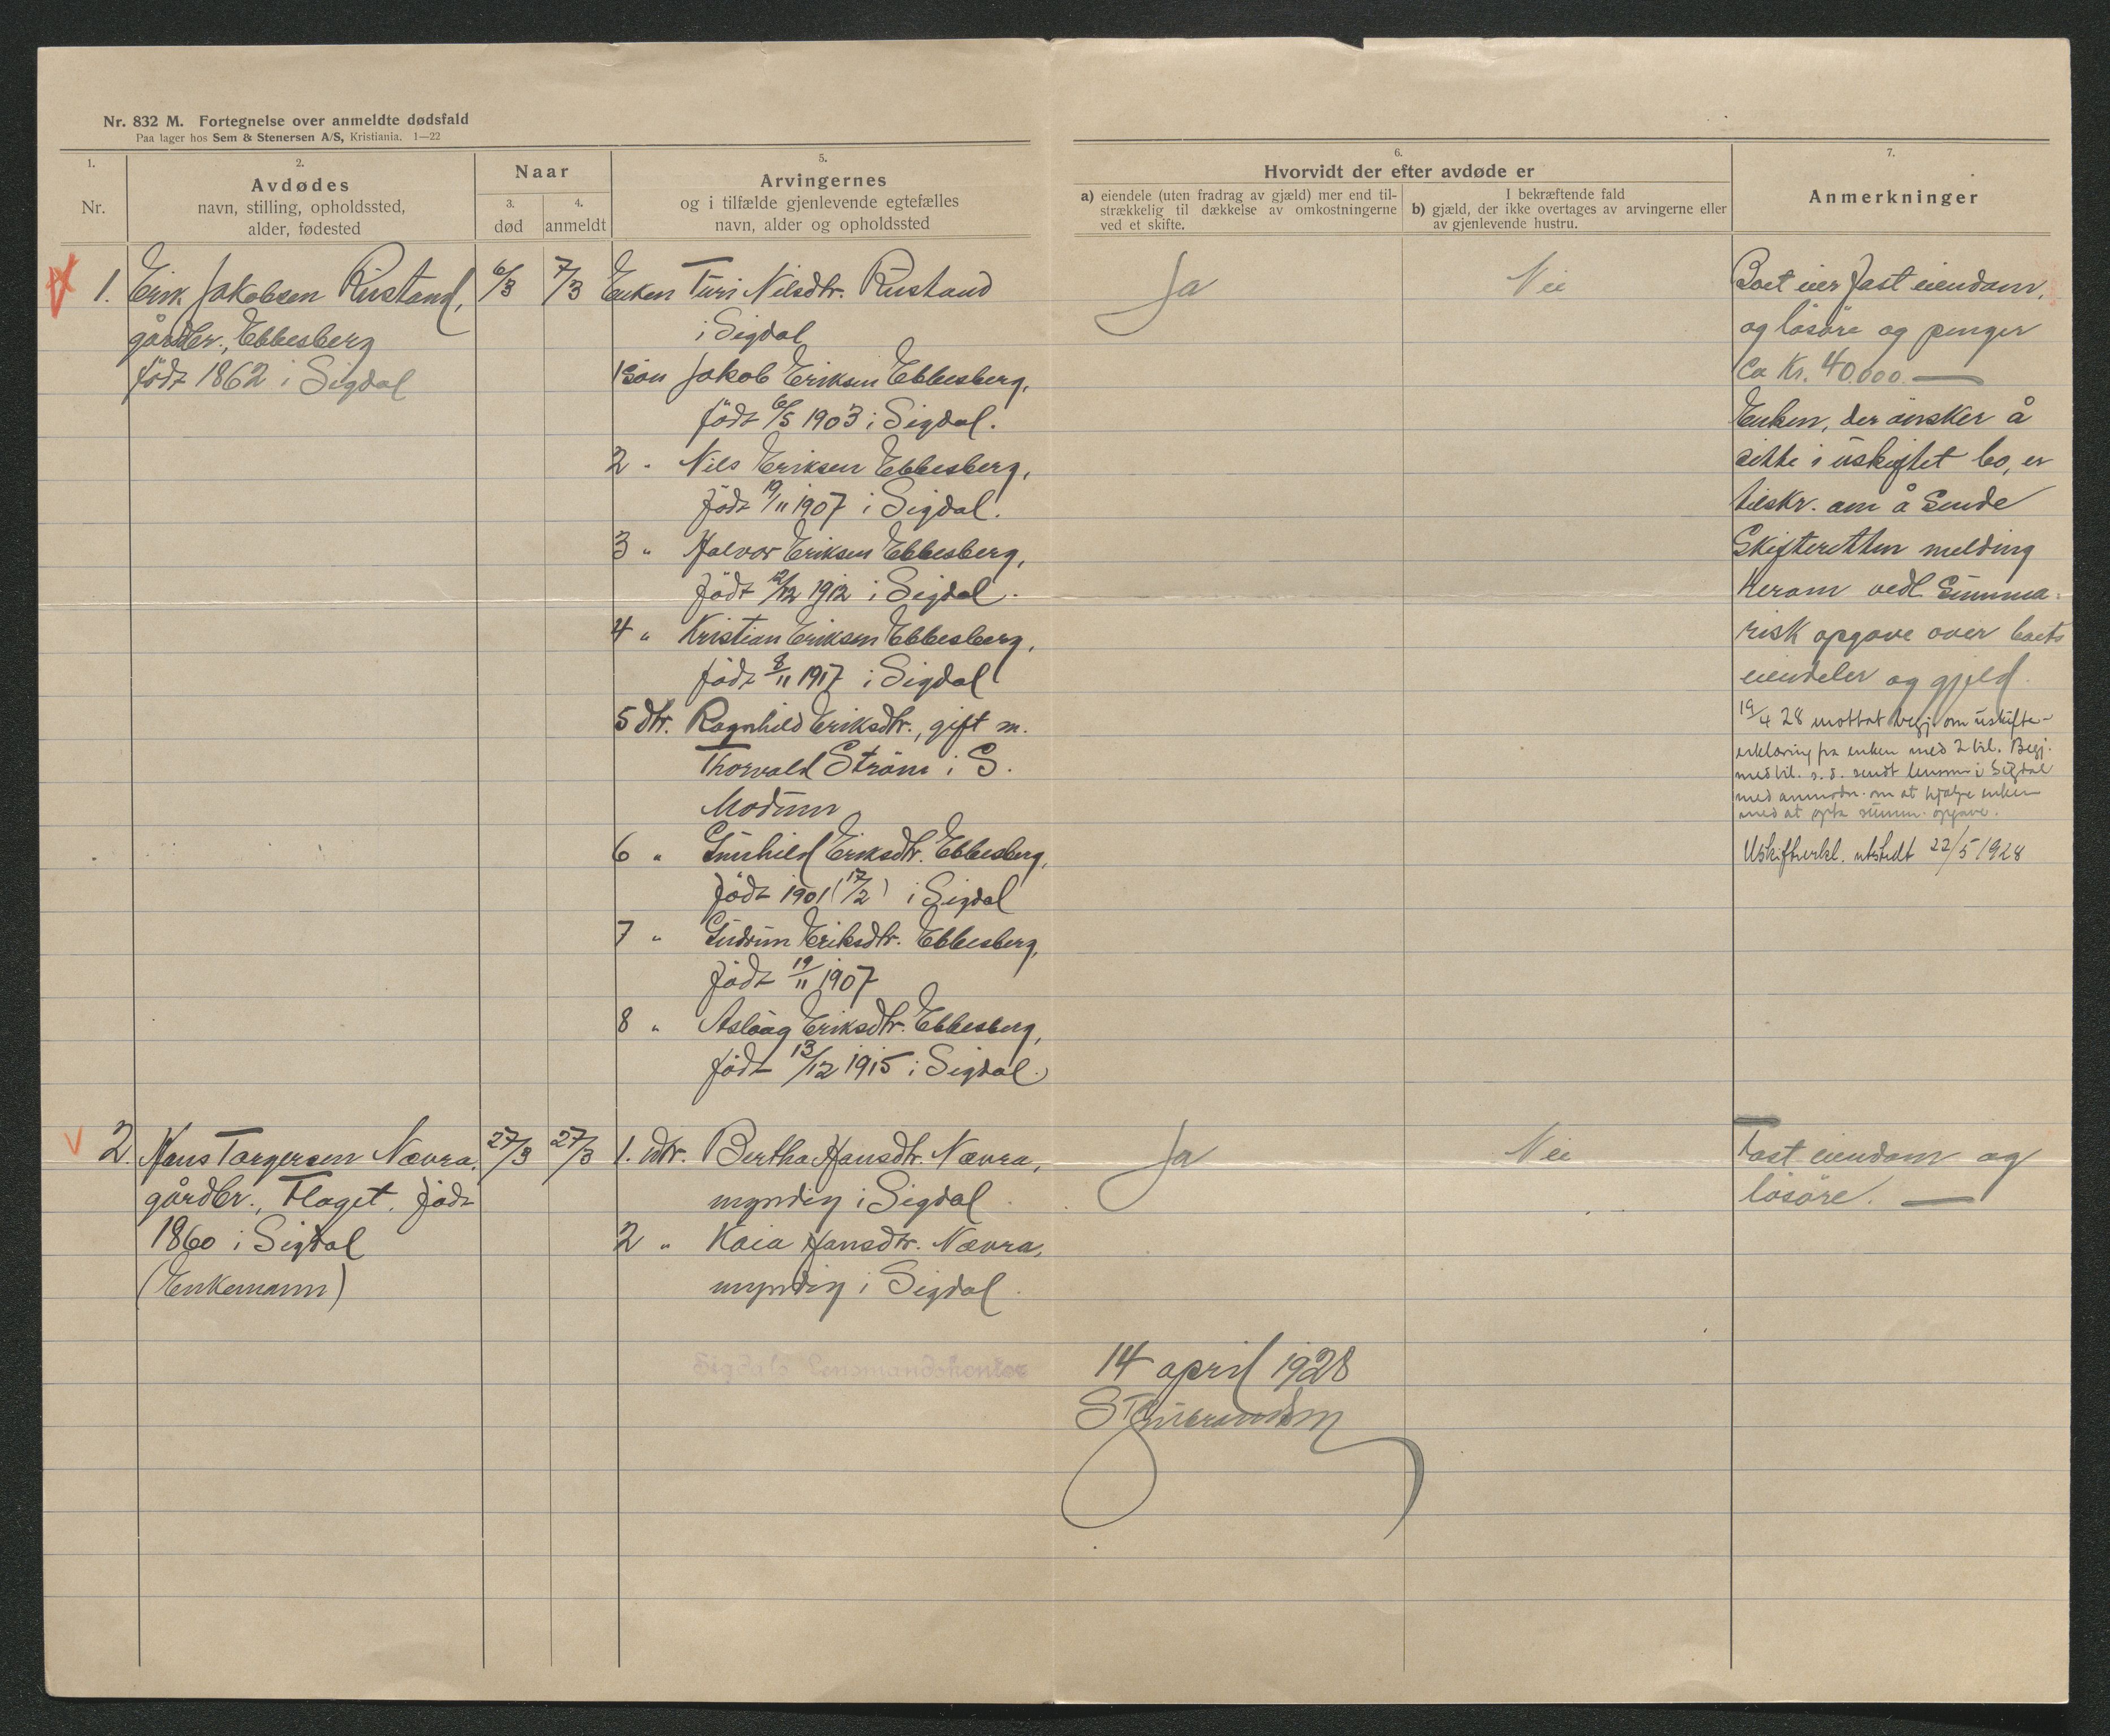 Nr. 832 M. Fortegnelse over anmeldte dødsfald
Paa lager hos Sem & Stenersen A/S, Kristiania. 1—22
1.
Nr.
2.
Avdødes
navn, stilling, opholdssted,
alder, fødested
Naar
3.
død
4.
anmeldt
5.
Arvingernes
og i tilfælde gjenlevende egtefælles
navn, alder og opholdssted
6.
Hvorvidt der efter avdøde er
a) eiendele (uten fradrag av gjæld) mer end til-
strækkelig til dækkelse av omkostningerne
ved et skifte.
I bekræftende fald
b) gjæld, der ikke overtages av arvingerne eller
av gjenlevende hustru.
7.
Anmerkninger
1. Erik Jakobsen Rustand,
gårdbr., Ebbesberg
født 1862 i Sigdal
6/3
7/3
Enken Turi Nilsdtr. Rustand
i Sigdal
1 søn Jakob Eriksen Ebbesberg,
født 6/5 1903 i Sigdal.
2 " Nils Eriksen Ebbesberg,
født 19/11 1907 i Sigdal.
3 " Halvor Eriksen Ebbesberg,
født 12/12 1912 i Sigdal.
4 " Kristian Eriksen Ebbesberg,
født 8/11 1917 i Sigdal
5 dtr. Ragnhild Eriksdtr., gift m.
Thorvald Strøm i S.
Modum
6 " Gunhild Eriksdtr. Ebbesberg,
født 1901 (17/2) i Sigdal
7 " Gudrun Eriksdtr. Ebbesberg,
født 19/11 1907
8 " Aslaug Eriksdtr. Ebbesberg,
født 13/12 1915 i Sigdal.
Ja
Nei
Boet eier fast eiendom,
og løsøre og penger
ca Kr. 40.000.—
Enken, der ønsker å
sitte i uskiftet bo, er
tilskr. om å sende
Skifteretten melding
herom vedl. summa-
risk opgave over boets
eiendeler og gjeld.
19/4 28 mottat begj. om uskifte-
erklæring fra enken med 2 bil. Begj.
med bil. s. d. sendt lensm. i Sigdal
med anmodn. om at hjælpe enken
med at opta summ. opgave.
Uskifteerkl. utstedt 22/5 1928
2. Hans Torgersen Nævra,
gårdbr., Flaget, født
1860 i Sigdal
(Enkemann)
27/3
27/3
1. dtr. Bertha Hansdtr. Nævra,
myndig i Sigdal
2 " Kaia Hansdtr. Nævra,
myndig i Sigdal.
Ja
Nei
Fast eiendom og
løsøre. —
Sigdals lensmandskontor
14 april 1928